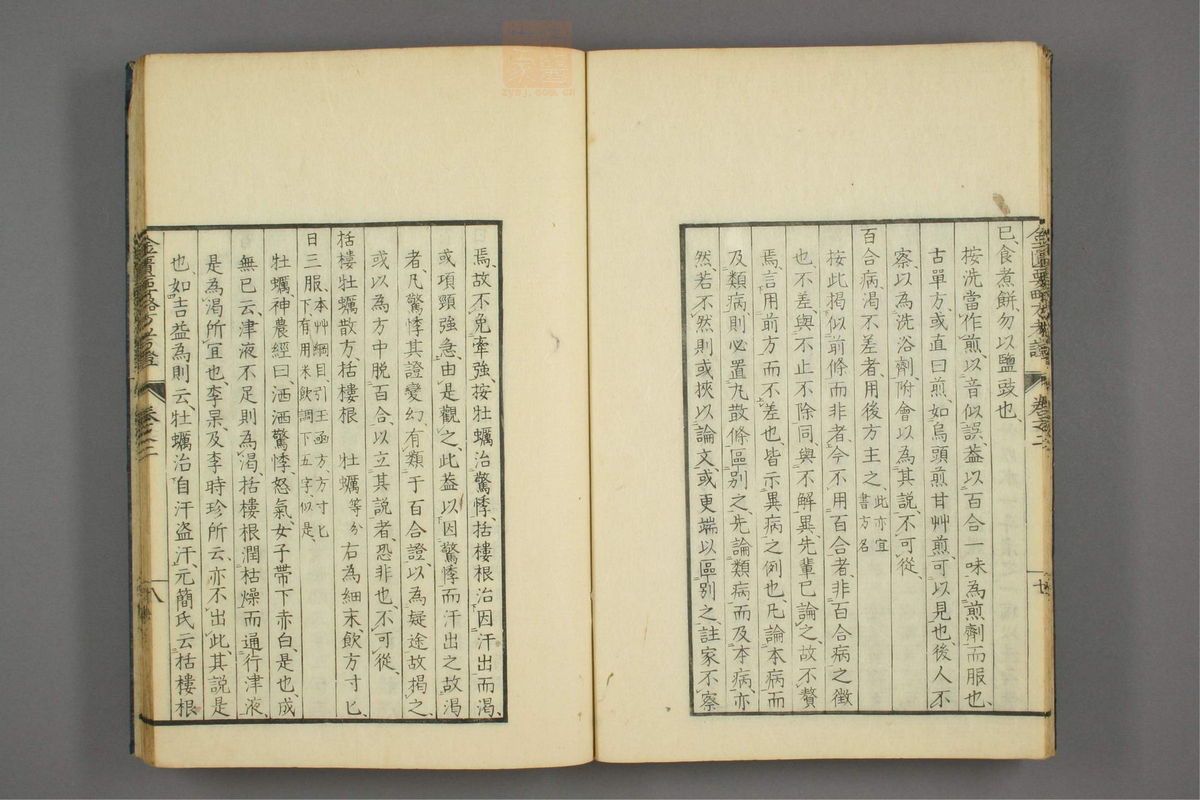 已、食煮餅、勿以鹽豉也、
按洗當作煎、以音似誤、葢以百合一味為煎劑而服也、
古單方、或直曰煎、如烏頭煎甘艸煎、可以見也、後人不
察、以為洗浴劑、附會以為其説、不可從、
百合病、渴不差者、用後方主之、此亦宜書方名
按此揭似前條而非者、今不用百合者、非百合病之徵
也、不差、與不止不除同、與不解異、先輩已論之、故不贅
焉、言用前方而不差也、皆示異病之例也、凡論本病而
及類病、則必置凡散條區别之、先論類病而及本病、亦
然、若不然、則或挾以論文、或更端以區别之、註家不察
焉、故不免牽強、按牡蠣治驚悸、括樓根治因汗出而渴、
或項頸強急、由是觀之、此葢以因驚悸而汗出之故渴
者、凡驚悸其證變幻、有類于百合證、以為疑途、故揭之、
或以為方中脱百合、以立其説者、恐非也、不可從、
括樓牡蠣散方、括樓根 牡蠣等分 右為細末、飲方寸匕、
日三服、本艸綱目、引王函方、方寸匕下、有用米飲調下五字、似是、
牡蠣神農經曰、洒洒驚悸怒氣、女子帶下赤白、是也、成
無已云、津液不足則為渴、括樓根潤枯燥而通行津液、
是為渴所宜也、李杲及李時珍所云、亦不出此、其説是
也、如吉益為則云、牡蠣治自汗盗汗、元簡氏云括樓根
金匱要略方
卷之二
八